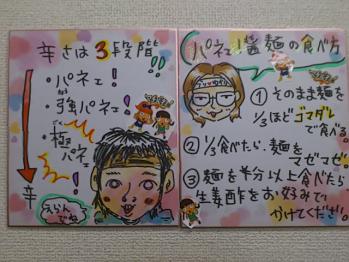 辛さは3段階!!
・パネェ!
・強パネェ!
・極パネェ!
辛
えらんでね
パネェ!醤麺の食べ方
①そのまま麺を
1/3ほどゴマダレ
で食べる。
②1/3食べたら、麺を
マゼマゼ。
③麺を半分以上食べたら
生姜酢をお好みで
かけてください。